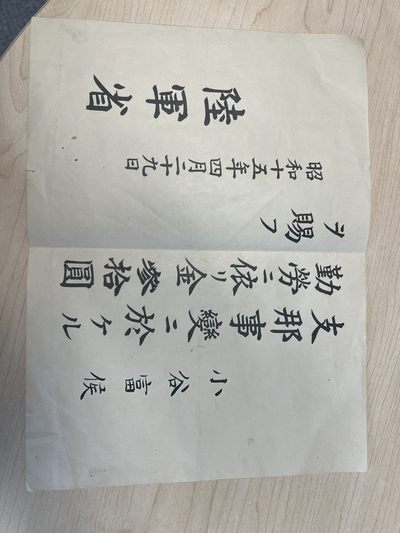 小谷富侯
支那事變ニ於ケル
勤勞ニ依リ金參拾圓
ヲ賜フ
昭和十五年四月二十九日
陸軍省